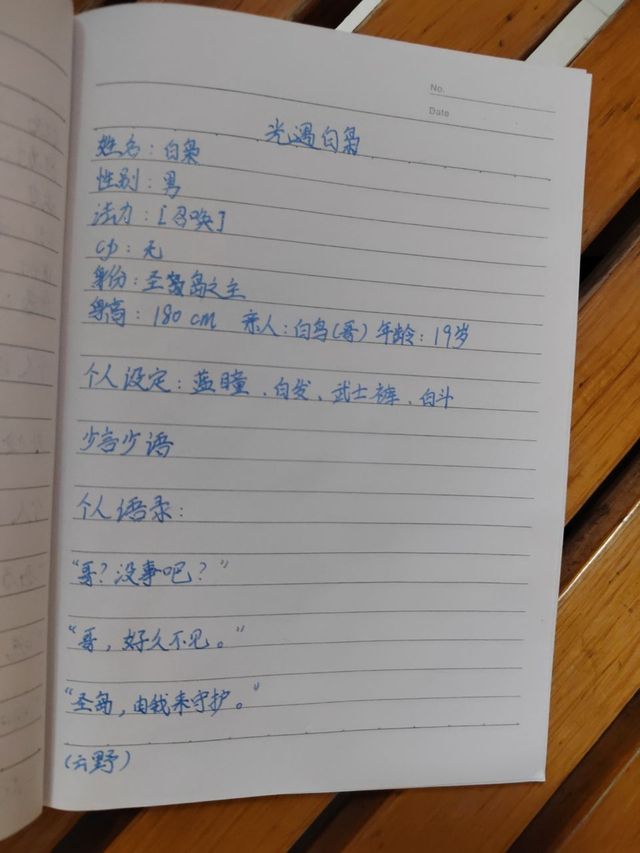 No.
Date
光遇白枭
姓名：白枭
性别：男
法力：[召唤]
cp：无
身份：圣岛之主
身高：180cm 亲人：白鸟(哥) 年龄：19岁
个人设定：蓝瞳、白发、武士裤、白斗
少言少语
个人语录：
“哥？没事吧？”
“哥，好久不见。”
“圣岛，由我来守护。”
(云野)